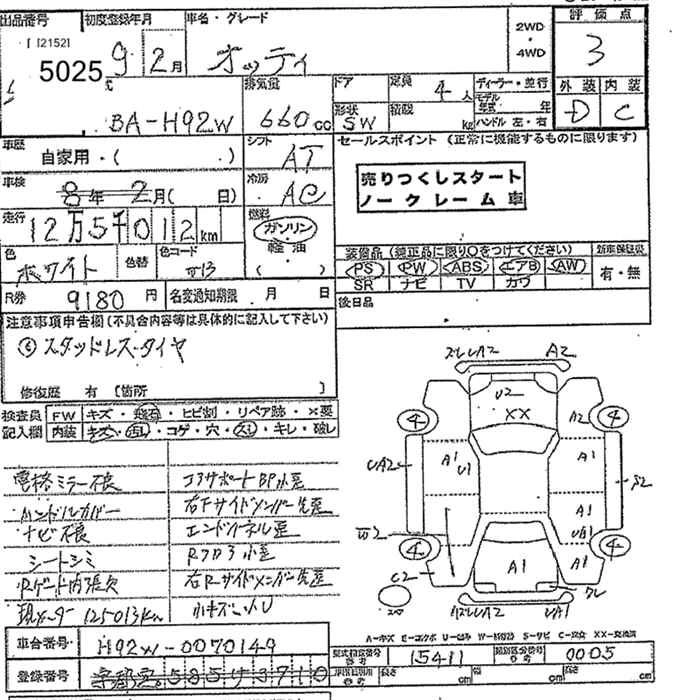 出品番号 初度登録年月 車名・グレード 2WD・4WD 評価点
[21521
5025 9 2月 オッティ 3
排気量 ドア 定員 4人 ディーラー・並行 外装 内装
BA-H92W 660cc 形状 SW 積載 kg モデル年式 年 ハンドル 左・右 D C
車歴 自家用・( ) シフト AT セールスポイント (正常に機能するものに限ります)
車検 8年2月( 日) 冷房 AC 売りつくしスタート
ノークレーム車
走行 12万5千012km 燃料 ガソリン 軽油 ( )
色 ホワイト 色替 色コード 装備品 (純正品に限り○をつけてください) 新車保証書
PS PW ABS エアB AW 有・無
SR ナビ TV カワ
R券 9180円 名変通知期限 月 日 後日品
注意事項申告欄 (不具合内容等は具体的に記入して下さい)
スタッドレスタイヤ
修復歴 有 [箇所 ]
検査員 FW キズ・飛石・ヒビ割・リペア跡・×要
記入欄 内装 キズ・汚レ・コゲ・穴・スレ・キレ・破レ
電格ミラー不良 コアサポートBP小歪
ハンドルカバー 右Fサイドメンバー先歪
ナビ不良 エンドパネル歪
シートシミ Rフロア小歪
Rゲート内張欠 右Rサイドメンバー先歪
現メーター 125013km 小キズ
A2
U2
XX
4 A2 4
A1 U1
UA2 S2
A1
W2 UA1
4 4
C2 A1 A1
UA1
A-キズ E-エクボ U-凹み W-補修跡 S-サビ C-腐食 XX-交換済
車台番号 H92W-0070149 型式指定番号 15411 類別区分番号 0005
登録番号 宇都宮 585 3710 長さ cm 幅 cm 高さ cm